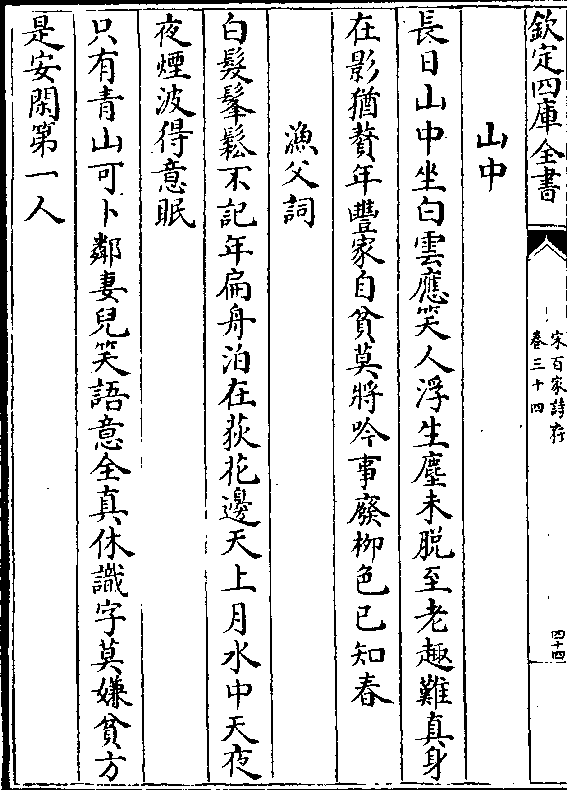 欽定四庫全書
宋百家詩存
卷三十四
四十四
山中
長日山中坐白雲應笑人浮生塵未脫至老趣難真身
在影猶贅年豐家自貧莫將吟事廢栁色已知春
漁父詞
白髮鬅鬆不記年扁舟泊在荻花邊天上月水中天夜
夜煙波得意眠
只有青山可卜鄰妻兒笑語意全真休識字莫嫌貧方
是安閑第一人